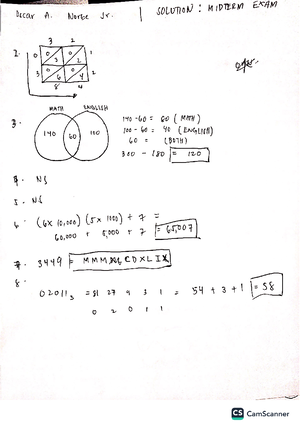 Oscar A. Norbe Jr.
SOLUTION : MIDTERM EXAM
2.
3 2
0 0 1
3 2
3 0 0 2
6 4
8 4
3.
MATH ENGLISH
140 60 100
140 - 60 = 60 (MATH)
100 - 60 = 40 (ENGLISH)
60 = (BOTH)
300 - 180 = 120
4. NS
5. NS
6. (6 x 10,000) (5 x 1000) + 7 =
60,000 + 5,000 + 7 = 65,007
7. 3449 = MMMCDXLIX
8.
02011₃ = 81 27 9 3 1 = 54 + 3 + 1 = 58
0 2 0 1 1
CS CamScanner